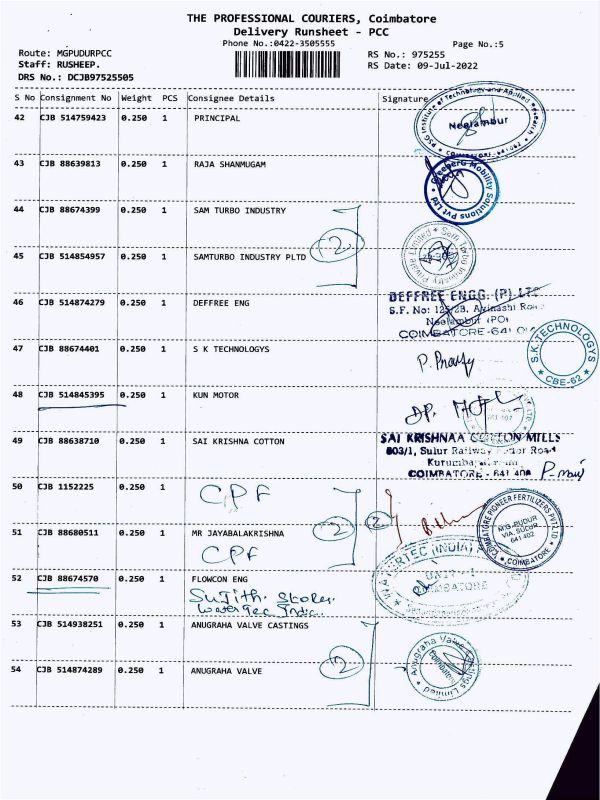 THE PROFESSIONAL COURIERS, Coimbatore
Delivery Runsheet - PCC
Phone No.:0422-3505555
Page No.:5
Route: MGPUDURPCC
RS No.: 975255
Staff: RUSHEEP.
RS Date: 09-Jul-2022
DRS No.: DCJB97525505
S No Consignment No Weight PCS Consignee Details Signature
42 CJB 514759423 0.250 1 PRINCIPAL
PSG Institute of Technology and Applied Research
Neelambur
43 CJB 88639813 0.250 1 RAJA SHANMUGAM
Mobility Solutions Pvt Ltd
44 CJB 88674399 0.250 1 SAM TURBO INDUSTRY
2
45 CJB 514854957 0.250 1 SAMTURBO INDUSTRY PLTD
Sam Turbo Industry Private Limited
46 CJB 514874279 0.250 1 DEFFREE ENG
DEFFREE ENGG. (P) LTD
S.F. No: 125/2B, Avinashi Road
Neelambur (PO)
COIMBATORE-641
47 CJB 88674401 0.250 1 S K TECHNOLOGYS
S.K.TECHNOLOGYS
CBE-62
48 CJB 514845395 0.250 1 KUN MOTOR
49 CJB 88638710 0.250 1 SAI KRISHNA COTTON
SAI KRISHNAA COTTON MILLS
803/1, Sulur Railway Feeder Road
COIMBATORE - 641 402
50 CJB 1152225 0.250 1 CPF
2 2
51 CJB 88680511 0.250 1 MR JAYABALAKRISHNA
CPF
COIMBATORE PIONEER FERTILIZERS PVT LTD
M.G. PUDUR
VIA. SULUR
641 402
COIMBATORE
52 CJB 88674570 0.250 1 FLOWCON ENG
Sujith. Stores
Watertec India.
WATERTEC (INDIA)
UNIT-1
COIMBATORE
53 CJB 514938251 0.250 1 ANUGRAHA VALVE CASTINGS
2
54 CJB 514874289 0.250 1 ANUGRAHA VALVE
Anugraha Valve Castings Limited
Coimbatore